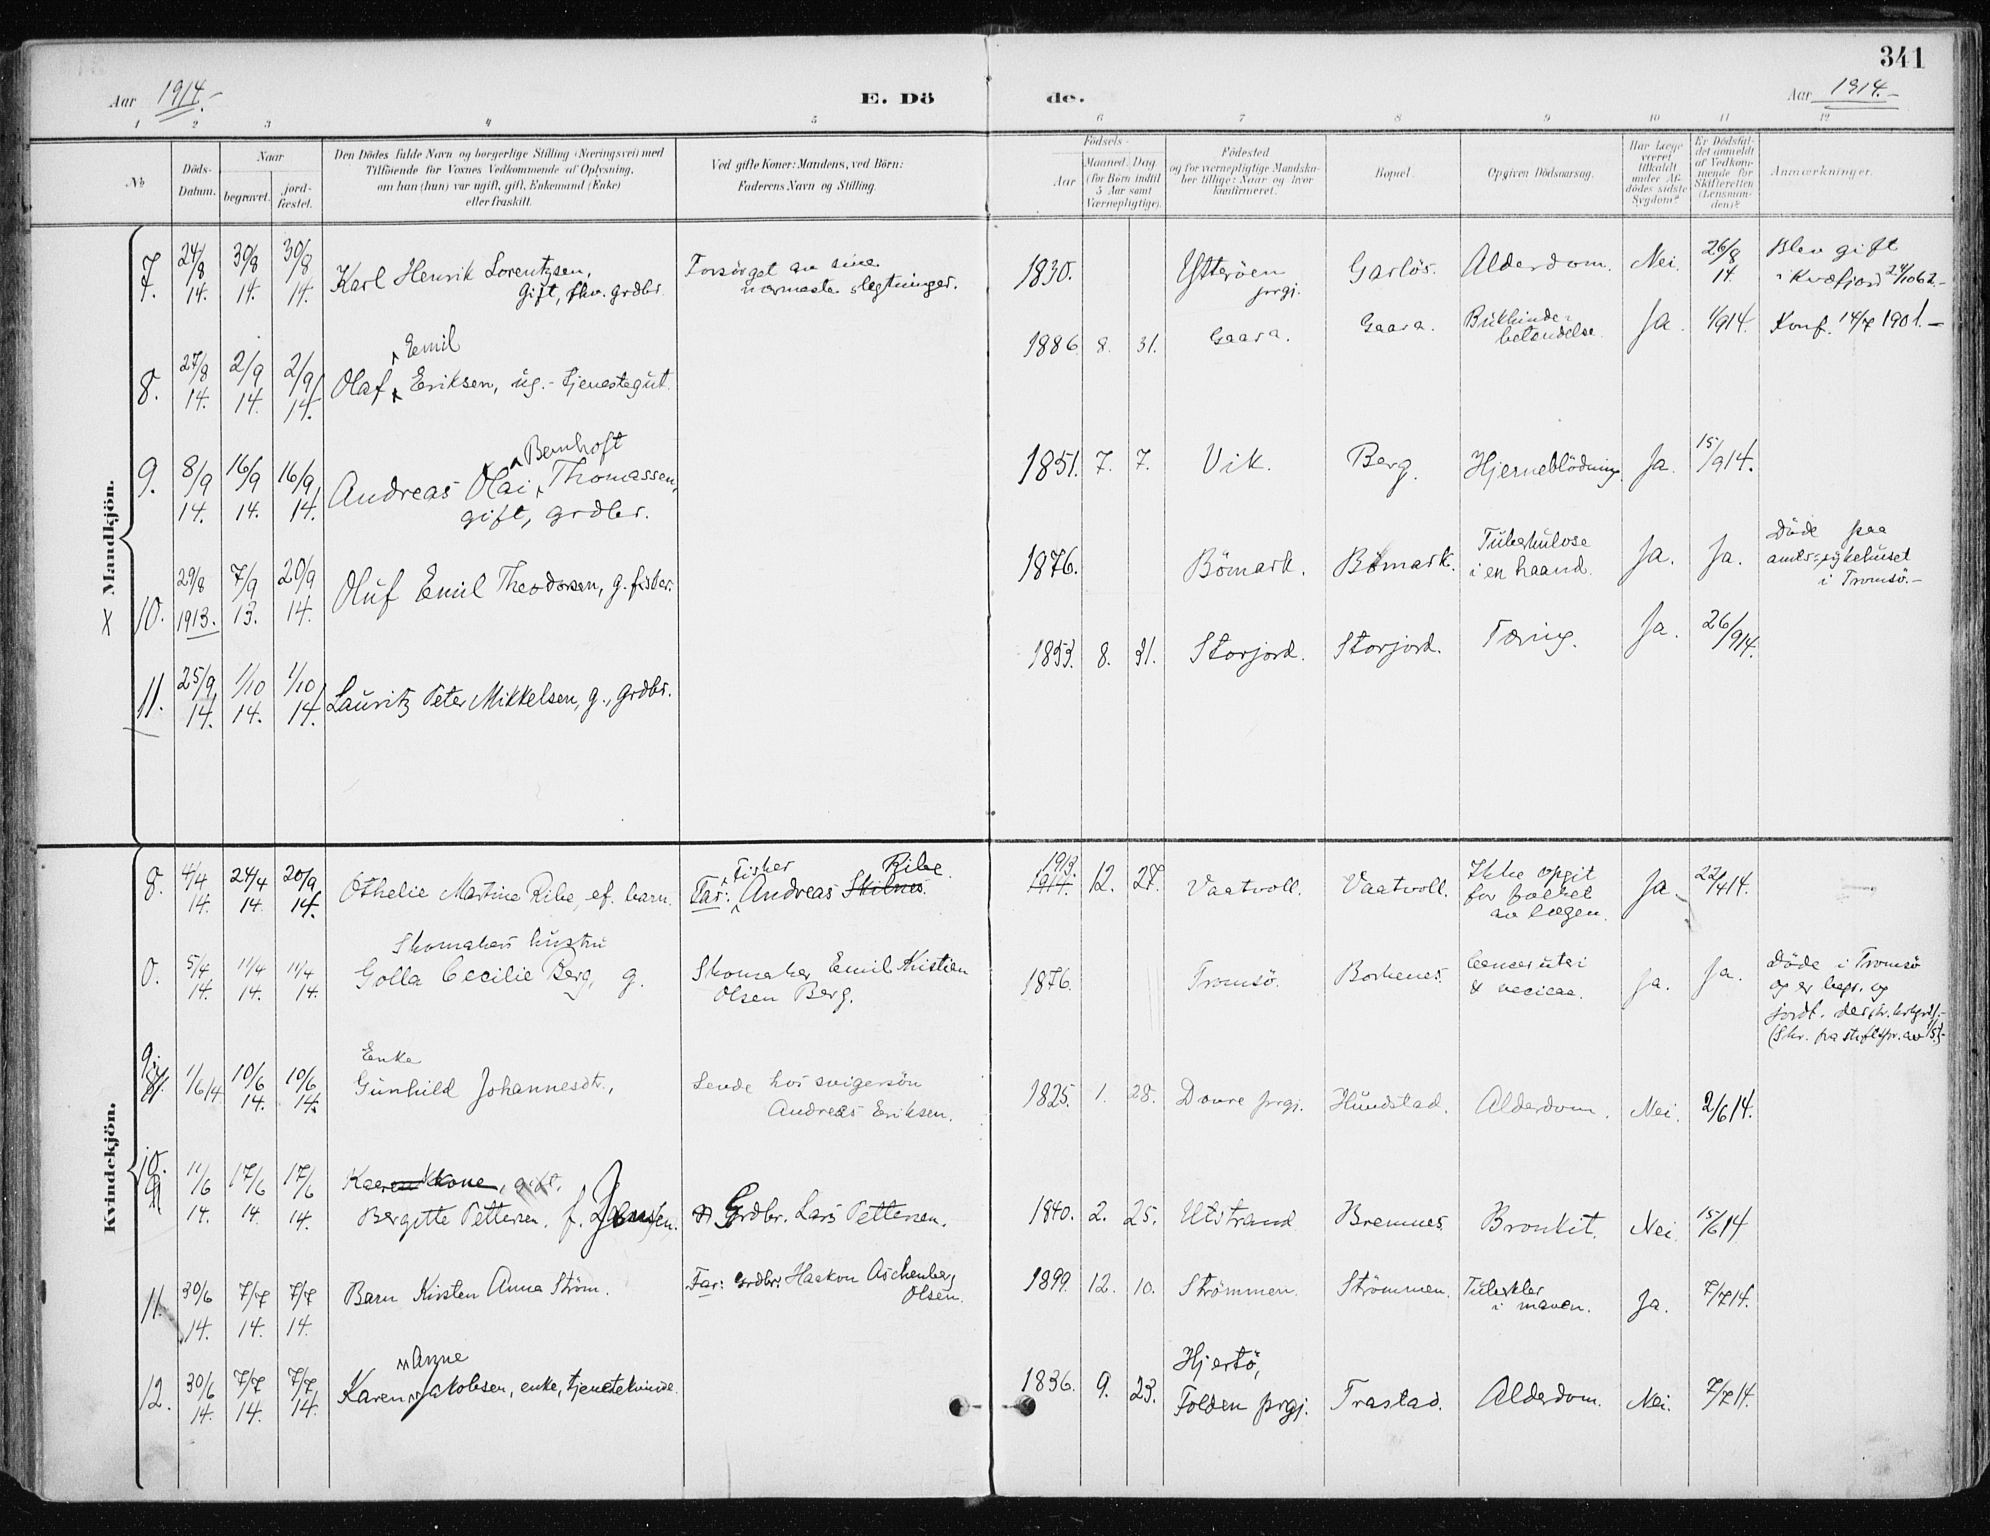 341
Aar 1914.-
E. Dö
de.
Aar 1914.-
1 2 3 4 5 6 7 8 9 10 11 12
No
Döds-Datum.
Naar
begravet.
jord-fæstet.
Den Dödes fulde Navn og borgerlige Stilling (Næringsvei) med
Tilföiende for Voxnes Vedkommende af Oplysning,
om han (hun) var ugift, gift, Enkemand (Enke)
eller fraskilt.
Ved gifte Koner: Mandens, ved Börn:
Faderens Navn og Stilling.
Födsels-
Aar
Maaned. Dag
(for Börn indtil
5 Aar samt
Værnepligtige).
Födested
og for værnepligtige Mandskaber tillige: Naar og hvor
konfirmeret.
Bopæl.
Opgiven Dödsaarsag.
Har Læge
været
tilkaldt
under Afdödes sidste
Sygdom?
Er Dödsfaldet anmeldt
af Vedkommende for
Skifteretten
(Lensmanden)?
Anmærkninger.
Mandkjön.
7. 24/8 14. 30/8 14. 30/8 14. Karl Henrik Lorentzsen,
Gift, fhv. grdbr.
Forsörget av sine
nærmeste slegtninger.
1830. Ytteröen
prgj. Garlös. Alderdom. Nei. 26/8 14. Blev gift
i Kvæfjord 24/10 62.-
8. 27/8 14. 2/9 14. 2/9 14. Emil
Olaf Eriksen, ug.- tjenestegut.
1886 8. 31. Gaara. Gaara. Bukhinde-
betændelse. Ja. 1/9 14. Konf. 14/7 1901.-
9. 8/9 14. 16/9 14. 16/9 14. Bernhoft
Andreas Olai Thomassen,
gift, grdbr.
1851. 7. 7. Vik. Berg. Hjerneblödning. Ja. 15/9 14.
X 10. 29/8 1913. 7/9 13. 20/9 14. Oluf Emil Theodorsen, g. fisker.
1876. Bömark. Bömark. Tuberkulose
i en haand. Ja. Ja. Döde paa
amts-sykehuset
i Tromsö.-
11. 25/9 14. 1/10 14. 1/10 14. Lauritz Peter Mikkelsen, g., grdbr.
1853. 8. 31. Storjord. Storjord. Tæring. Ja. 26/9 14.
Kvindekjön.
8. 4/4 14. 24/4 14. 20/9 14. Othelie Martine Ribe, ef. barn.
Far: fisker Andreas Skilnes. Ribe.
1914. 1913 12. 27. Vaatvoll. Vaatvoll. Ikke opgit
for folket
av lægen. Ja 22/4 14.
0. 5/4 14. 11/4 14. 11/4 14. Skomakers hustru
Golla Cecilie Berg, g.
Skomaker Emil Kristian
Olsen Berg.
1876. Tromsö. Borkenes. Cancer uteri
& vecicae. Ja. Ja. Döde i Tromsö
og er begr. og
jordf. der
9. 1/6 14 10/6 14. 10/6 14. Enke
Gunhild Johannesdtr.,
Levde hos svigersön
Andreas Eriksen.
1825. 1. 28. Dovre prgj. Hundstad. Alderdom. Nei. 2/6 14.
10. 11/6 14. 17/6 14. 17/6 14. Kone, gift,
Bergitte Pettersen. f. Jensen.
Grdbr. Lars Pettersen.
1840. 2. 25. Utstrand Bremnes. Bronkit. Nei. 15/6 14
11. 30/6 14. 7/7 14. 7/7 14. Barn Kirsten Anna Ström.
Far: Grdbr: Haakon Aschenberg
Olsen.
1899. 12. 10. Strömmen. Strömmen. Tuberkler
i maven. Ja. 7/7 14.
12. 30/6 14. 7/7 14. 7/7 14. Anne
Karen Jakobsen, enke, tjenestekvinde.
1836. 9. 23. Hjertö,
Folden prgj. Trastad. Alderdom. Nei. 7/7 14.